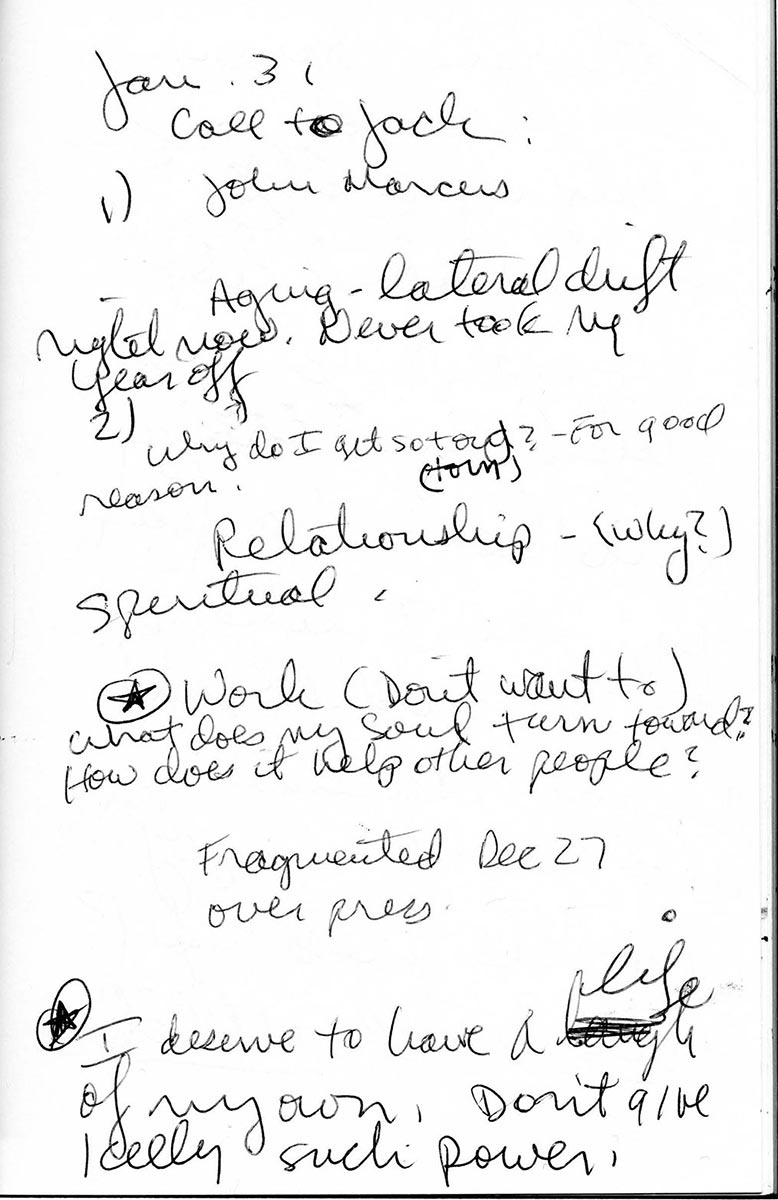 Jan. 31
Call to Jack:
1) John Marcus
Aging - lateral drift
right now. Never took my
year off
2)
Why do I get so torn? - For good
(torn)
reason.
Relationship - (why?)
Spiritual.
★ Work (Don't want to)
What does my soul turn toward?
How does it help other people?
Fragmented Dec 27
over press.
life
★ I deserve to have a laugh
of my own. Don't give
Kelly such power.